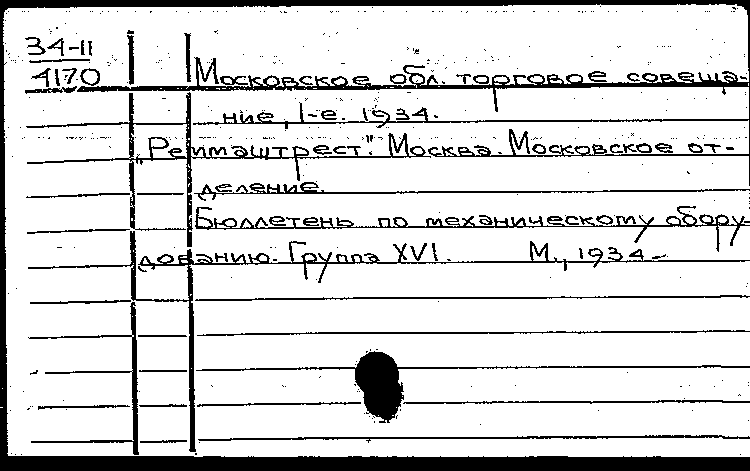 34-II
4170
Московское обл. торговое совеща-
ние, I-е. 1934.
„Реммаштрест". Москва. Московское от-
деление.
Бюллетень по механическому обору
дованию. Группа XVI. М., 1934-